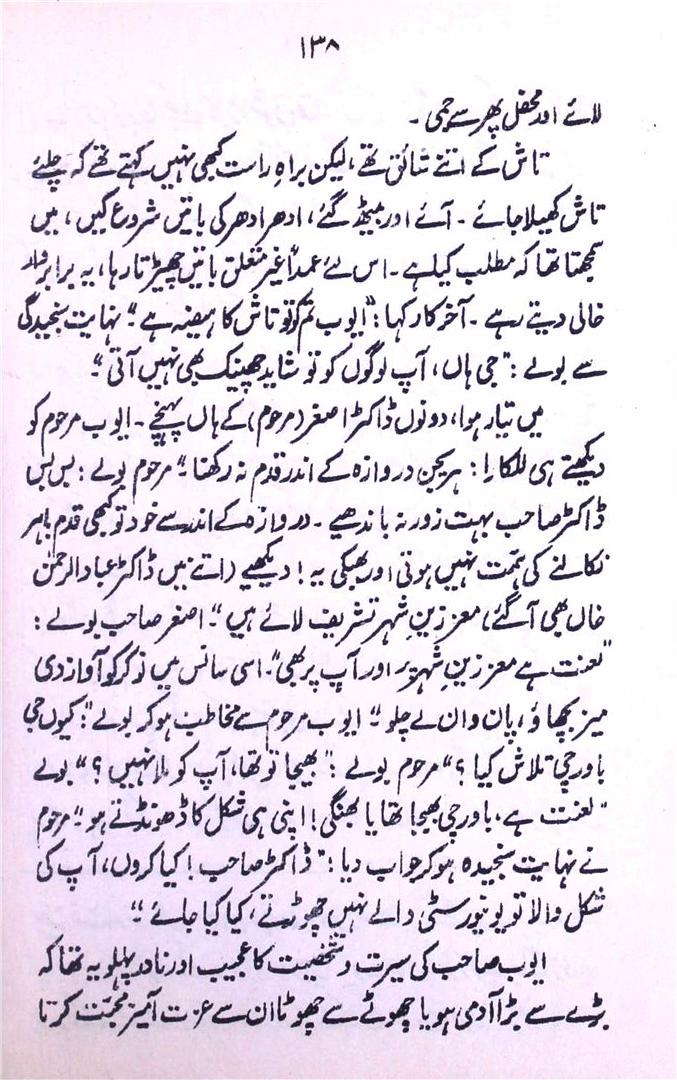 ۱۳۸
لائے اور محفل پھر سے جمی ۔
تاش کے اتنے شائق تھے، لیکن براہِ راست کبھی نہیں کہتے تھے کہ چلئے
تاش کھیلا جائے ۔ آئے اور بیٹھ گئے، ادھر ادھر کی باتیں شروع کیں، میں
سمجھتا تھا کہ مطلب کیا ہے ۔ اس لئے عمداً غیر متعلق باتیں چھیڑتا رہا، یہ برابر وار
خالی دیتے رہے ۔ آخر کار کہا: "ایوب تم کو تو تاش کا ہیضہ ہے"۔ نہایت سنجیدگی
سے بولے: "جی ہاں، آپ لوگوں کو تو شاید چھینک بھی نہیں آتی"۔
میں تیار ہوا، دونوں ڈاکٹر اصغر (مرحوم) کے ہاں پہنچے ۔ ایوب مرحوم کو
دیکھتے ہی للکارا: ہریجن دروازہ کے اندر قدم نہ رکھنا"۔ مرحوم بولے: بس بس
ڈاکٹر صاحب بہت زور نہ باندھیے ۔ دروازہ کے اندر سے خود تو کبھی قدم باہر
نکالنے کی ہمّت نہیں ہوتی اور بھبکی یہ! دیکھیے راتے میں ڈاکٹر عباد الرحمٰن
خاں بھی آ گئے) معززینِ شہر تشریف لائے ہیں"۔ اصغر صاحب بولے:
"لعنت ہے معززینِ شہر پر اور آپ پر بھی"۔ اسی سانس میں نوکر کو آواز دی
میز بچھاؤ، پان وان لے چلو"۔ ایوب مرحوم سے مخاطب ہو کر بولے: "کیوں جی
باورچی تلاش کیا؟" مرحوم بولے: "بھیجا تو تھا، آپ کو ملا نہیں؟" بولے
"لعنت ہے، باورچی بھیجا تھا یا بھنگی! اپنی ہی شکل کا ڈھونڈتے ہو"۔ مرحوم
نے نہایت سنجیدہ ہو کر جواب دیا: "ڈاکٹر صاحب! کیا کروں، آپ کی
شکل والا تو یونیورسٹی والے نہیں چھوڑتے، کیا کیا جائے"۔
ایوب صاحب کی سیرت و شخصیت کا عجیب اور نادر پہلو یہ تھا کہ
بڑے سے بڑا آدمی ہو یا چھوٹے سے چھوٹا ان سے عزت آمیز محبّت کرتا